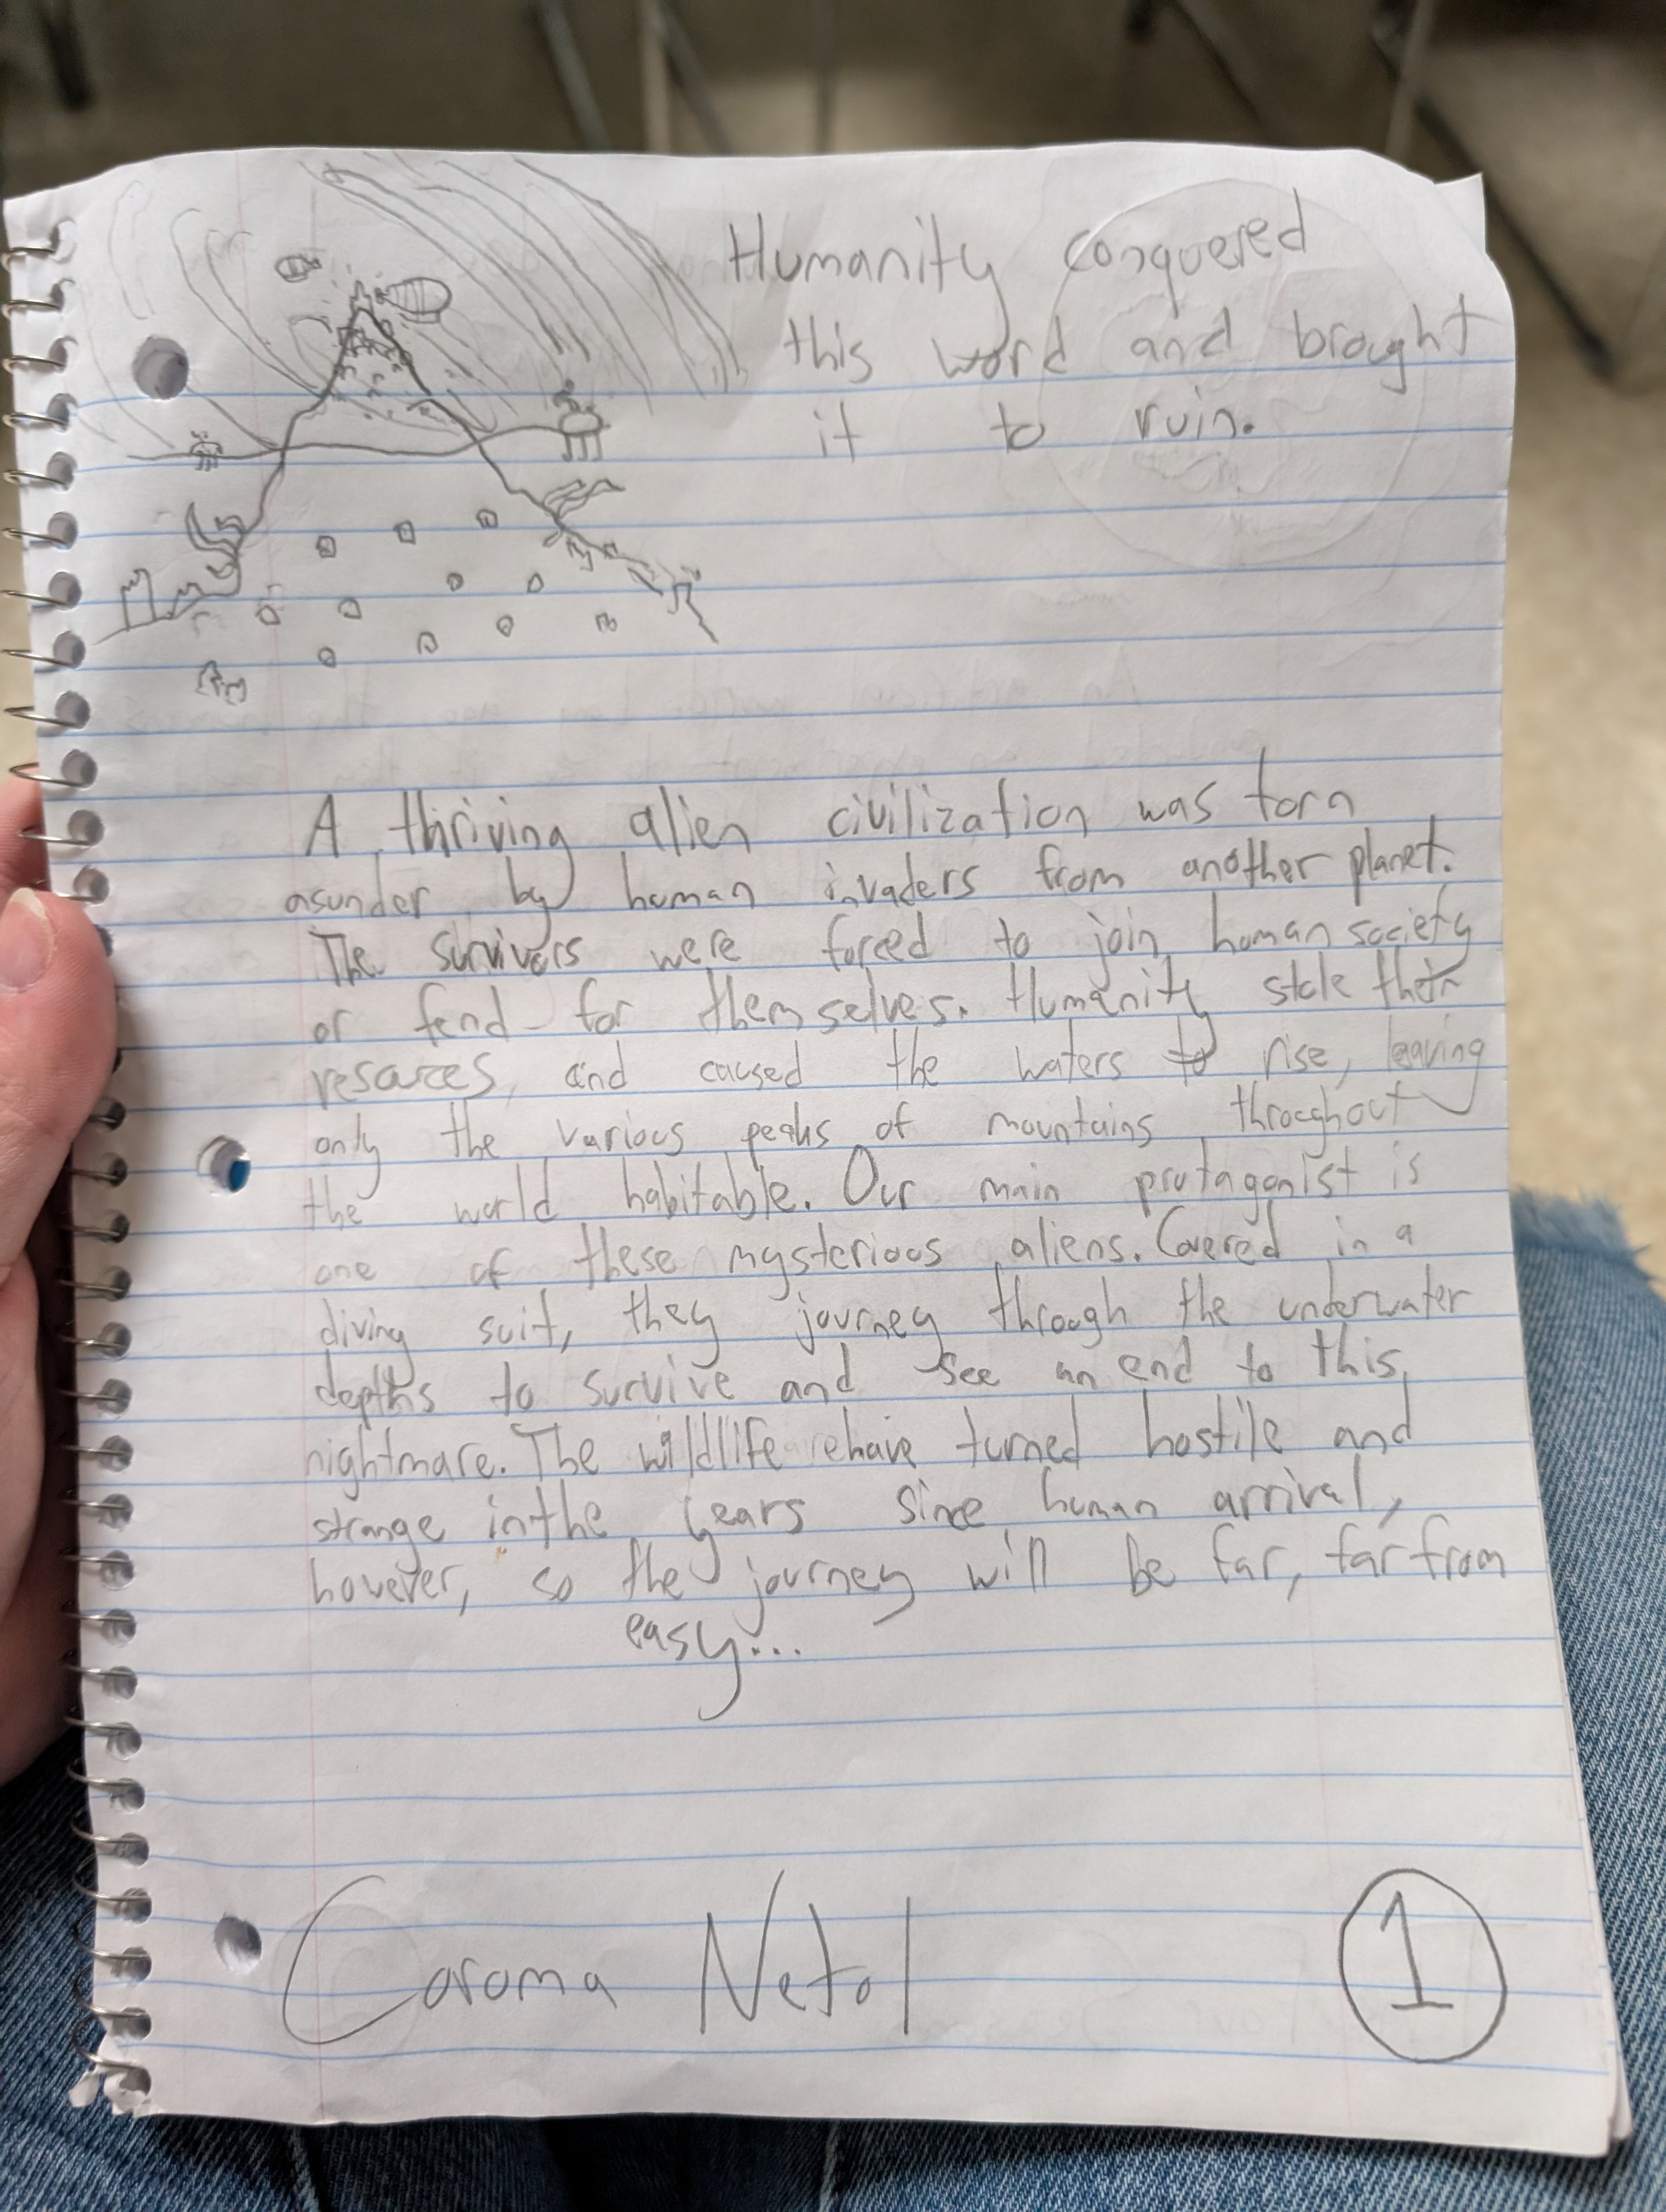 Humanity conquered
this word and brought
it to ruin.
A thriving alien civilization was torn
asunder by human invaders from another planet.
The survivors were forced to join human society
or fend for themselves. Humanity stole their
resources and caused the waters to rise, leaving
only the various peaks of mountains throughout
the world habitable. Our main protagonist is
one of these mysterious aliens. Covered in a
diving suit, they journey through the underwater
depths to survive and see an end to this
nightmare. The wildlife have turned hostile and
strange in the years since human arrival,
however, so the journey will be far, far from
easy...
Coroma Netol
1